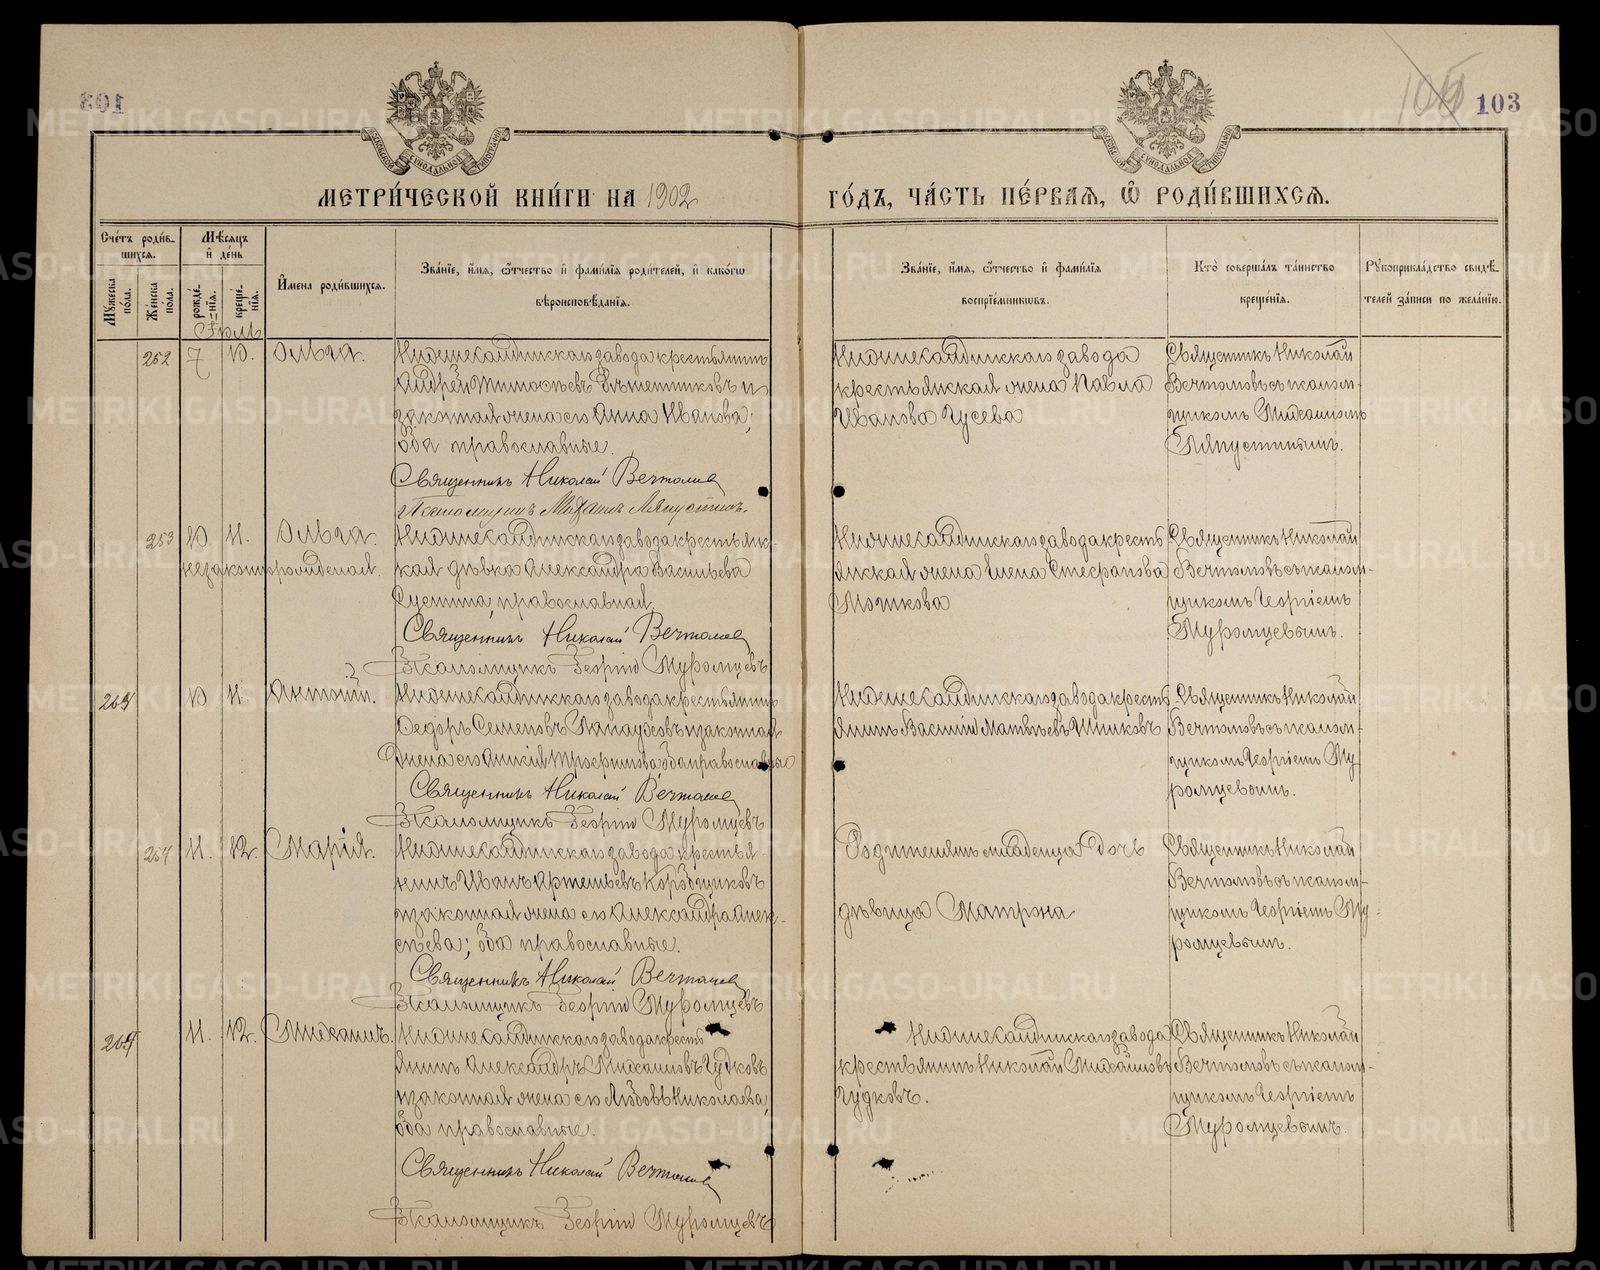 103
105
103
МЕТРИ́ЧЕСКОЙ КНИ́ГИ НА 1902
ГО́ДЪ, ЧА́СТЬ ПЕ́РВАѦ, Ѿ РОДИ́ВШИХСѦ.
Сче́тъ роди́в-
шихсѧ.
Мꙋ́жеска по́ла.
Же́нска по́ла.
Мѣ́сѧцъ
и҆ де́нь
рожде́-нїѧ.
креще́-нїѧ.
И҆мена̀ роди́вшихсѧ.
Зва́нїе, и҆́мѧ, ѻ҆́тчество и҆ фами́лїѧ роди́телей, и҆ како́гѡ
вѣроисповѣ́данїѧ.
Зва́нїе, и҆́мѧ, ѻ҆́тчество и҆ фами́лїѧ
воспрїе́мникѡвъ.
Кто̀ соверша́лъ та́инство
креще́нїѧ.
Рꙋкоприкла́дство свидѣ́-
телей за́писи по жела́нїю.
Іюль
252 7 10. Ольга.
Нижнесалдинскаго завода крестьянинъ
Андрей Тимофѣевъ
законная жена его Анна Иванова;
оба православные.
Священникъ Николай Вечтомовъ
Псаломщикъ Михаилъ Ляпустинъ.
Нижнесалдинскаго завода
крестьянская жена Павла
Иванова Гусева
Священникъ Николай
Вечтомовъ съ псалом-
щикомъ Михаиломъ
Ляпустинымъ.
253 10. 11. Ольга.
незаконнорожденная.
Нижнесалдинскаго завода крестьянс-
кая дѣвка Александра Васильева
православная.
Священникъ Николай Вечтомовъ
Псаломщикъ Георгій Муромцевъ
Нижнесалдинскаго завода кресть
янская жена Елена Стефанова
Мотикова
Священникъ Николай
Вечтомовъ съ псалом-
щикомъ Георгіемъ
Муромцевымъ.
264 10 11. Антоній.
Нижнесалдинскаго завода, крестьянинъ
Ѳедоръ Семеновъ и законная
жена его Анисія Трофимова, оба православные
Священникъ Николай Вечтомовъ
Псаломщикъ Георгій Муромцевъ
Нижнесалдинскаго завода кресть
янинъ Василій Матвѣевъ Шишковъ
Священникъ Николай
Вечтомовъ съ псалом-
щикомъ Георгіемъ Му
ромцевымъ.
254 11. 12. Марія.
Нижнесалдинскаго завода крестья-
нинъ Иванъ Артемьевъ Коробщиковъ
и законная жена его Александра Алек-
сѣева; оба православные.
Священникъ Николай Вечтомовъ
Псаломщикъ Георгій Муромцевъ
Родителямъ младенца дочь
дѣвица Матрона
Священникъ Николай
Вечтомовъ съ псалом-
щикомъ Георгіемъ Му-
ромцевымъ.
265 11. 12. Михаилъ.
Нижнесалдинскаго завода кресть
янинъ Александръ Михаиловъ Гудковъ
и законная жена его Любовь Николаева,
оба православные.
Священникъ Николай Вечтомовъ
Псаломщикъ Георгій Муромцевъ
Нижнесалдинскаго завода
крестьянинъ Николай Михайловъ
Гудковъ.
Священникъ Николай
Вечтомовъ съ псалом-
щикомъ Георгіемъ
Муромцевымъ.
METRIKI.GASO-URAL.RU